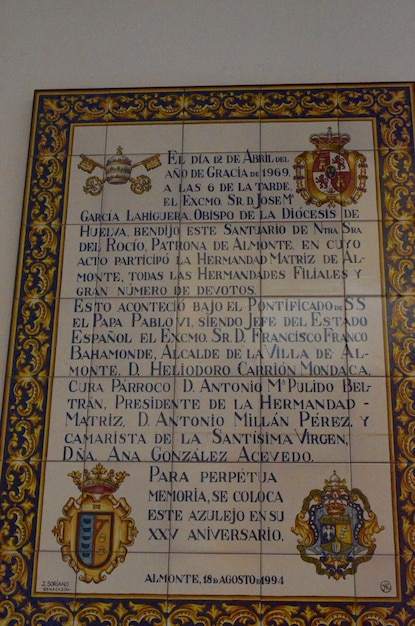 EL DÍA 12 DE ABRIL DEL
AÑO DE GRACIA DE 1969,
A LAS 6 DE LA TARDE,
EL EXCMO. SR. D. JOSE Mª
GARCÍA LAHIGUERA, OBISPO DE LA DIÓCESIS DE
HUELVA, BENDIJO ESTE SANTUARIO DE NTRA. SRA.
DEL ROCÍO, PATRONA DE ALMONTE, EN CUYO
ACTO PARTICIPÓ LA HERMANDAD MATRIZ DE AL-
MONTE, TODAS LAS HERMANDADES FILIALES Y
GRAN NÚMERO DE DEVOTOS.
ESTO ACONTECIÓ BAJO EL PONTIFICADO DE S S
EL PAPA PABLO VI, SIENDO JEFE DEL ESTADO
ESPAÑOL EL EXCMO. SR. D. FRANCISCO FRANCO
BAHAMONDE, ALCALDE DE LA VILLA DE AL-
MONTE, D. HELIODORO CARRIÓN MONDACA,
CURA PÁRROCO D. ANTONIO Mª PULIDO BEL-
TRÁN, PRESIDENTE DE LA HERMANDAD -
MATRIZ, D. ANTONIO MILLÁN PÉREZ, Y
CAMARISTA DE LA SANTÍSIMA VIRGEN,
DÑA. ANA GONZÁLEZ ACEVEDO.
PARA PERPETUA
MEMORIA, SE COLOCA
ESTE AZULEJO EN SU
XXV ANIVERSARIO.
ALMONTE, 18 DE AGOSTO DE 1994
J. SORIANO
BENACAZÓN